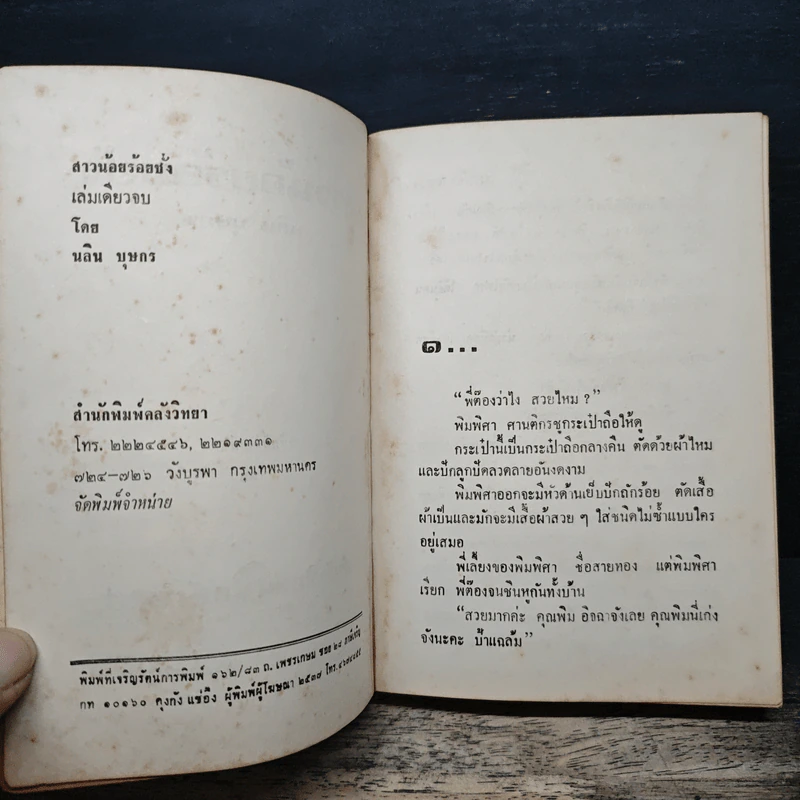 สาวน้อยร้อยชั่ง
เล่มเดียวจบ
โดย
นลิน บุษกร
สำนักพิมพ์คลังวิทยา
โทร. ๒๒๒๔๕๔๖, ๒๒๑๙๓๓๑
๗๒๔–๗๒๖ วังบูรพา กรุงเทพมหานคร
จัดพิมพ์จำหน่าย
พิมพ์ที่เจริญรัตน์การพิมพ์ ๑๖๒/๘๓ ถ. เพชรเกษม ซอย ๒๘ ภาษีเจริญ
กท ๑๐๑๖๐ คุงกัง แซ่อึง ผู้พิมพ์ผู้โฆษณา ๒๕๓๗ โทร.
๑...
“พี่ต๊องว่าไง สวยไหม ?”
พิมพิศา ศานติกรชูกระเป๋าถือให้ดู
กระเป๋านี้เป็นกระเป๋าถือกลางคืน ตัดด้วยผ้าไหม
และปักลูกปัดลวดลายอันงดงาม
พิมพิศาออกจะมีหัวด้านเย็บปักถักร้อย ตัดเสื้อ
ผ้าเป็นและมักจะมีเสื้อผ้าสวย ๆ ใส่ชนิดไม่ซ้ำแบบใคร
อยู่เสมอ
พี่เลี้ยงของพิมพิศา ชื่อสายทอง แต่พิมพิศา
เรียก พี่ต๊องจนชินหูกันทั้งบ้าน
“สวยมากค่ะ คุณพิม อิจฉาจังเลย คุณพิมนี่เก่ง
จังนะคะ ป้าแฉล้ม”